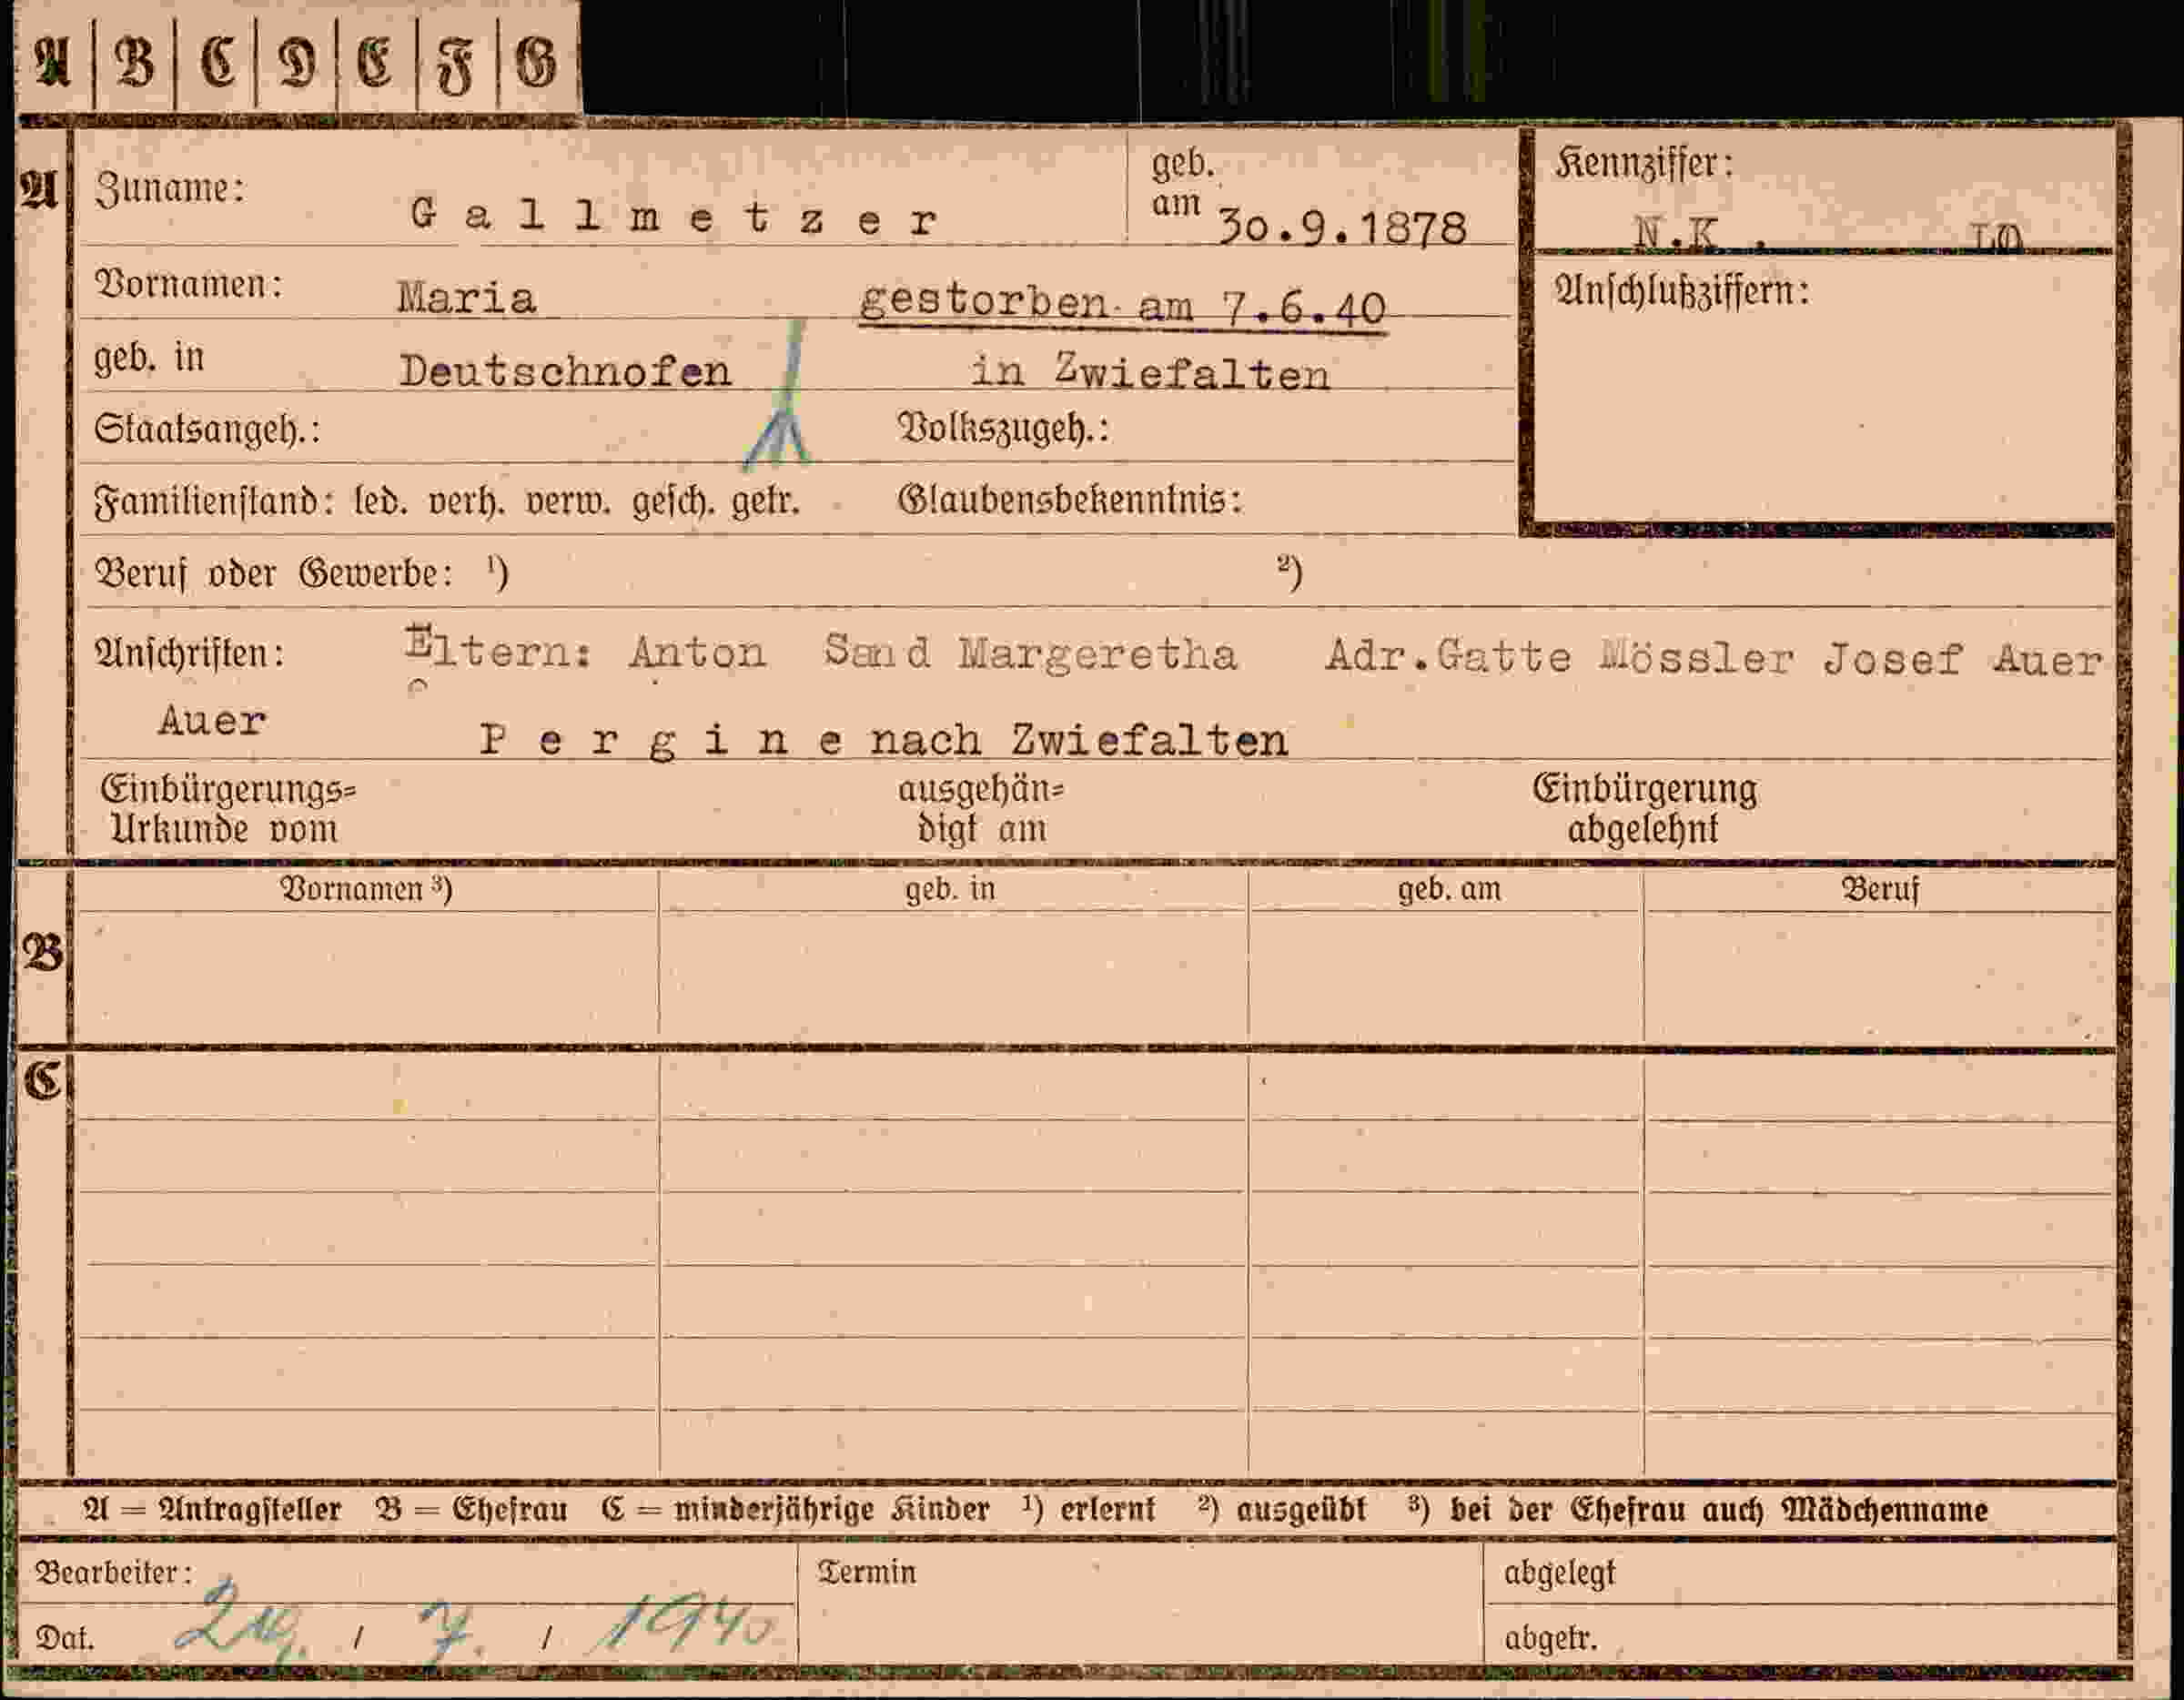 A B C D E F G
A Zuname: Gallmetzer geb. am 30.9.1878 Kennziffer:
N.K.
Vornamen: Maria gestorben am 7.6.40 Anschlußziffern:
geb. in Deutschnofen in Zwiefalten
Staatsangeh.: Volkszugeh.:
Familienstand: led. verh. verw. gesch. getr. Glaubensbekenntnis:
Beruf oder Gewerbe: ¹) ²)
Anschriften: Eltern: Anton Sand Margeretha Adr.Gatte Mössler Josef Auer
Auer Pergine nach Zwiefalten
Einbürgerungs= ausgehän= Einbürgerung
Urkunde vom digt am abgelehnt
Vornamen ³) geb. in geb. am Beruf
B
C
A = Antragsteller B = Ehefrau C = minderjährige Kinder ¹) erlernt ²) ausgeübt ³) bei der Ehefrau auch Mädchenname
Bearbeiter: Termin abgelegt
Dat. / 7. / 1940 abgetr.